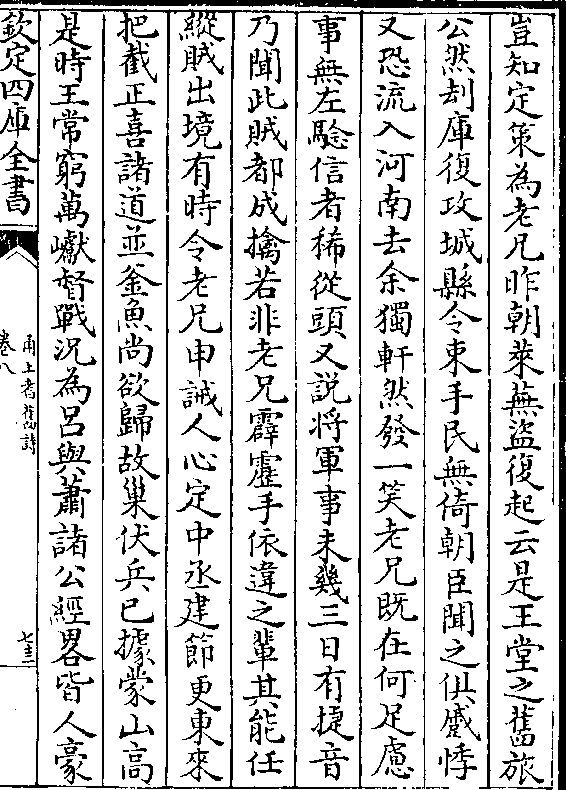 豈知定策為老兄昨朝萊蕪盜復起云是王堂之舊旅
公然刦庫復攻城縣令束手民無倚朝臣聞之俱慼悸
又恐流入河南去余獨軒然發一笑老兄既在何足慮
事無左驗信者稀從頭又說将軍事未幾三日有捷音
乃聞此賊都成擒若非老兄霹靂手依違之輩其能任
縱賊出境有時令老兄申誡人心定中丞建節更東來
把截正喜諸道並釜魚尚欲歸故巢伏兵已據蒙山高
是時王常窮萬巘督戰況為呂與蕭諸公經畧皆人豪
欽定四庫全書
甬上耆舊詩
卷八
七三